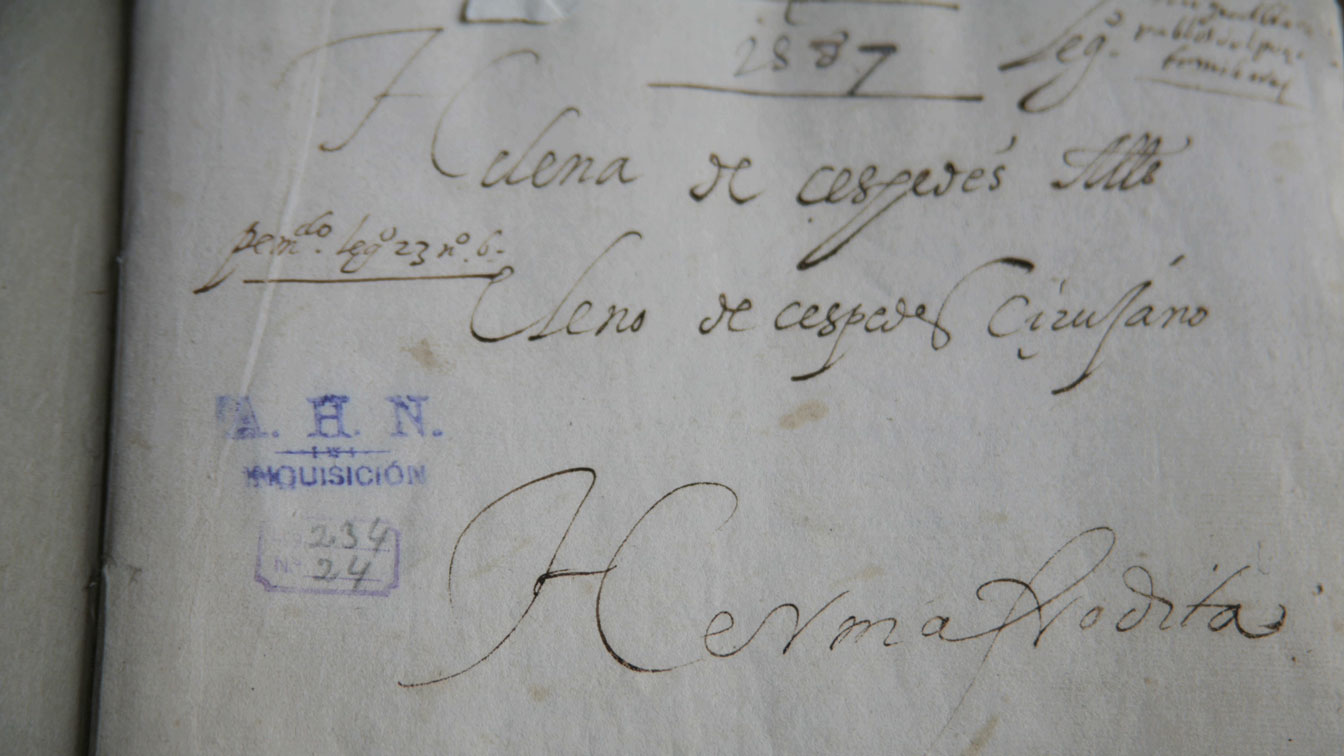 1587
Leg.º
Helena de cespedes Alls
penm.do legº 23 nº 6.
Eleno de cespedes Cirujano
A. H. N.
INQUISICIÓN
234
Nº 24
Hermafrodita